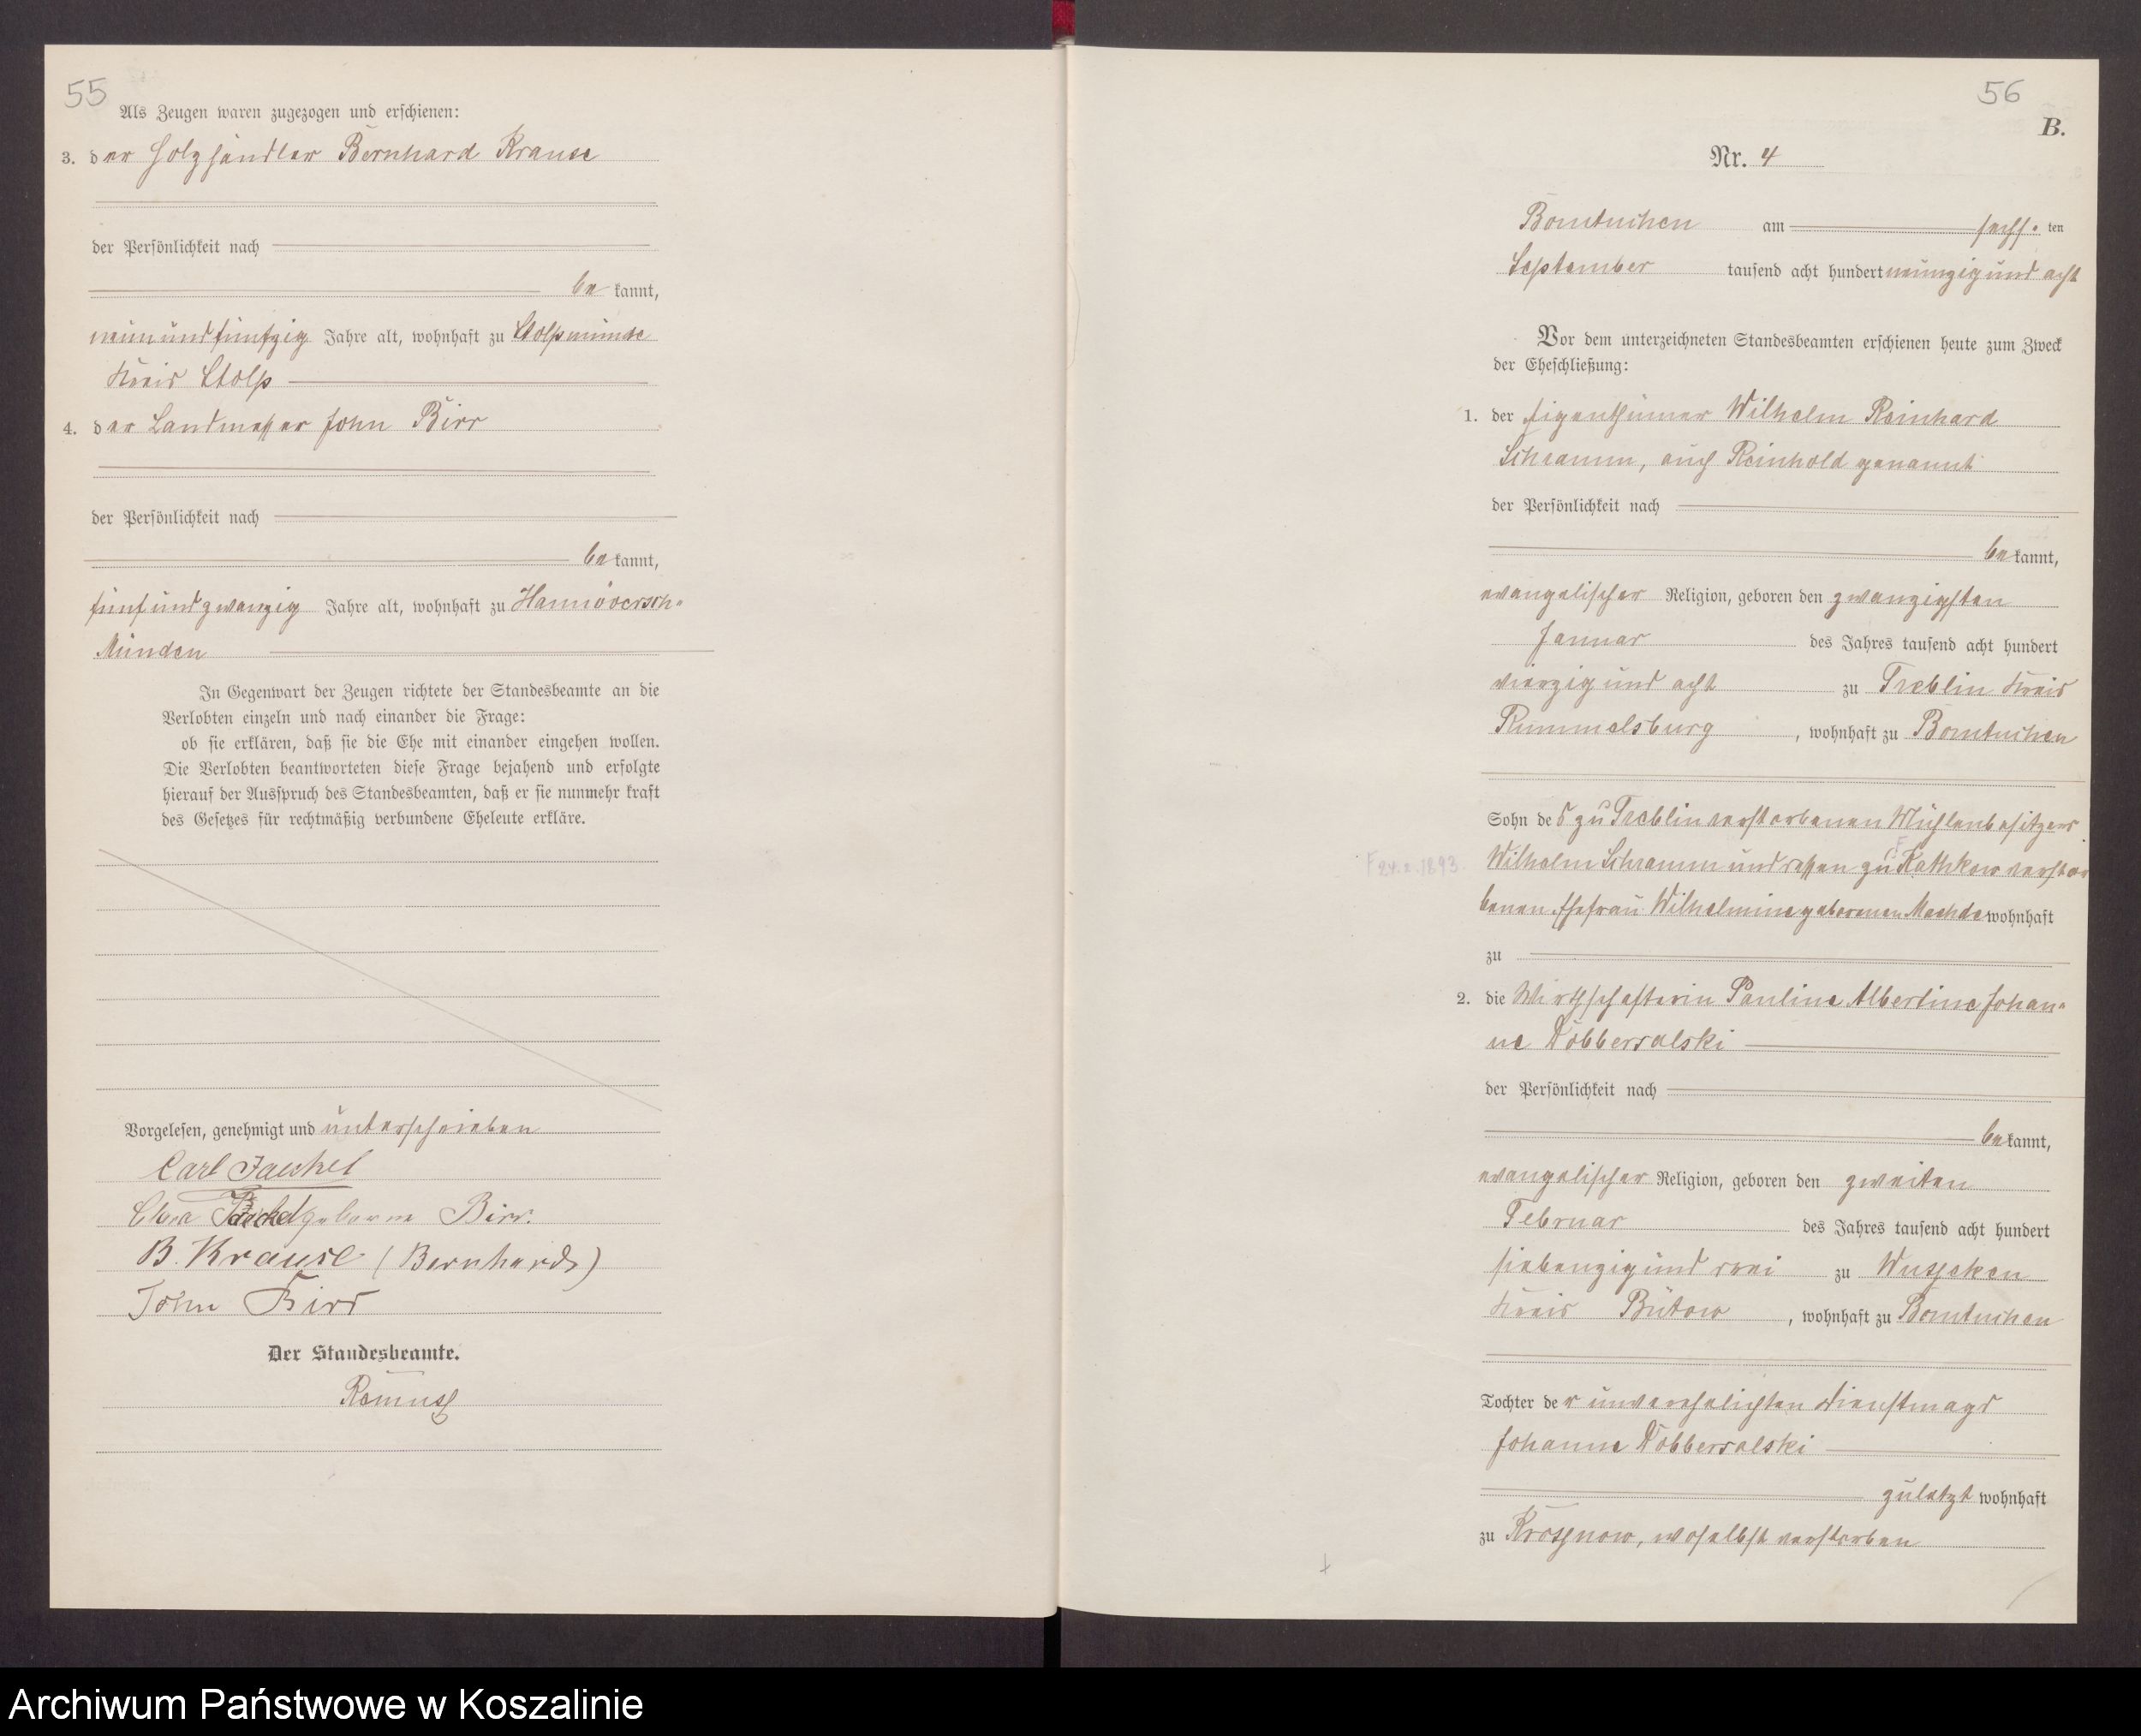 55
Als Zeugen waren zugezogen und erschienen:
3. der Holzhändler Bernhard Krause
der Persönlichkeit nach
bekannt,
neunundfünfzig Jahre alt, wohnhaft zu Stolpmünde
Kreis Stolp
4. der Landmesser John Birr
der Persönlichkeit nach
bekannt,
fünfundzwanzig Jahre alt, wohnhaft zu Hannoversch-
Münden
In Gegenwart der Zeugen richtete der Standesbeamte an die
Verlobten einzeln und nach einander die Frage:
ob sie erklären, daß sie die Ehe mit einander eingehen wollen.
Die Verlobten beantworteten diese Frage bejahend und erfolgte
hierauf der Ausspruch des Standesbeamten, daß er sie nunmehr kraft
des Gesetzes für rechtmäßig verbundene Eheleute erkläre.
Vorgelesen, genehmigt und unterschrieben
Carl Jaeckel
Clara Jaeckel geborene Birr.
B. Krause (Bernhard)
John Birr
Der Standesbeamte.
56
B.
Nr. 4
Borntuchen am sechs. ten
September tausend acht hundert neunzig und acht
Vor dem unterzeichneten Standesbeamten erschienen heute zum Zweck
der Eheschließung:
1. der Eigenthümer Wilhelm Reinhard
Schramm, auch Reinhold genannt
der Persönlichkeit nach
bekannt,
evangelischer Religion, geboren den zwanzigsten
Januar des Jahres tausend acht hundert
vierzig und acht zu Treblin Kreis
Rummelsburg, wohnhaft zu Borntuchen
Sohn des zu Treblin verstorbenen Mühlenbesitzers
F 24.2.1893.
Wilhelm Schramm und dessen zu Kathkow verstor
benen Ehefrau Wilhelmine geborenen wohnhaft
zu
2. die Wirthschafterin Pauline Albertine Johan-
ne Döbberalski
der Persönlichkeit nach
bekannt,
evangelischer Religion, geboren den zweiten
Februar des Jahres tausend acht hundert
siebenzig und drei zu Wusseken
Kreis Bütow, wohnhaft zu Borntuchen
Tochter der unverehelichten Dienstmagd
Johanne
zuletzt wohnhaft
zu Krossnow, woselbst verstorben
Archiwum Państwowe w Koszalinie